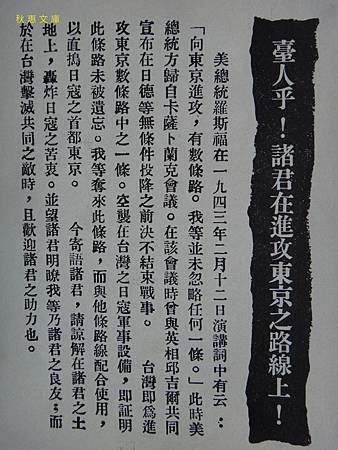 秋惠文庫
臺人乎！諸君在進攻東京之路線上！
美總統羅斯福在一九四三年二月十二日演講詞中有云：
「向東京進攻，有數條路。我等並未忽略任何一條。」此時美
總統方歸自卡薩卜蘭克會議。在該會議時曾與英相邱吉爾共同
宣布在日德等無條件投降之前決不結束戰事。　台灣即為進
攻東京數條路中之一條。空襲在台灣之日寇軍事設備，即証明
此條路未被遺忘。我等奪來此條路，而與他條路線配合使用，
以直搗日寇之首都東京。　今寄語諸君，請諒解在諸君之土
地上，轟炸日寇之苦衷。並望諸君明瞭我等乃諸君之良友；而
於在台灣擊滅共同之敵時，且歡迎諸君之助力也。